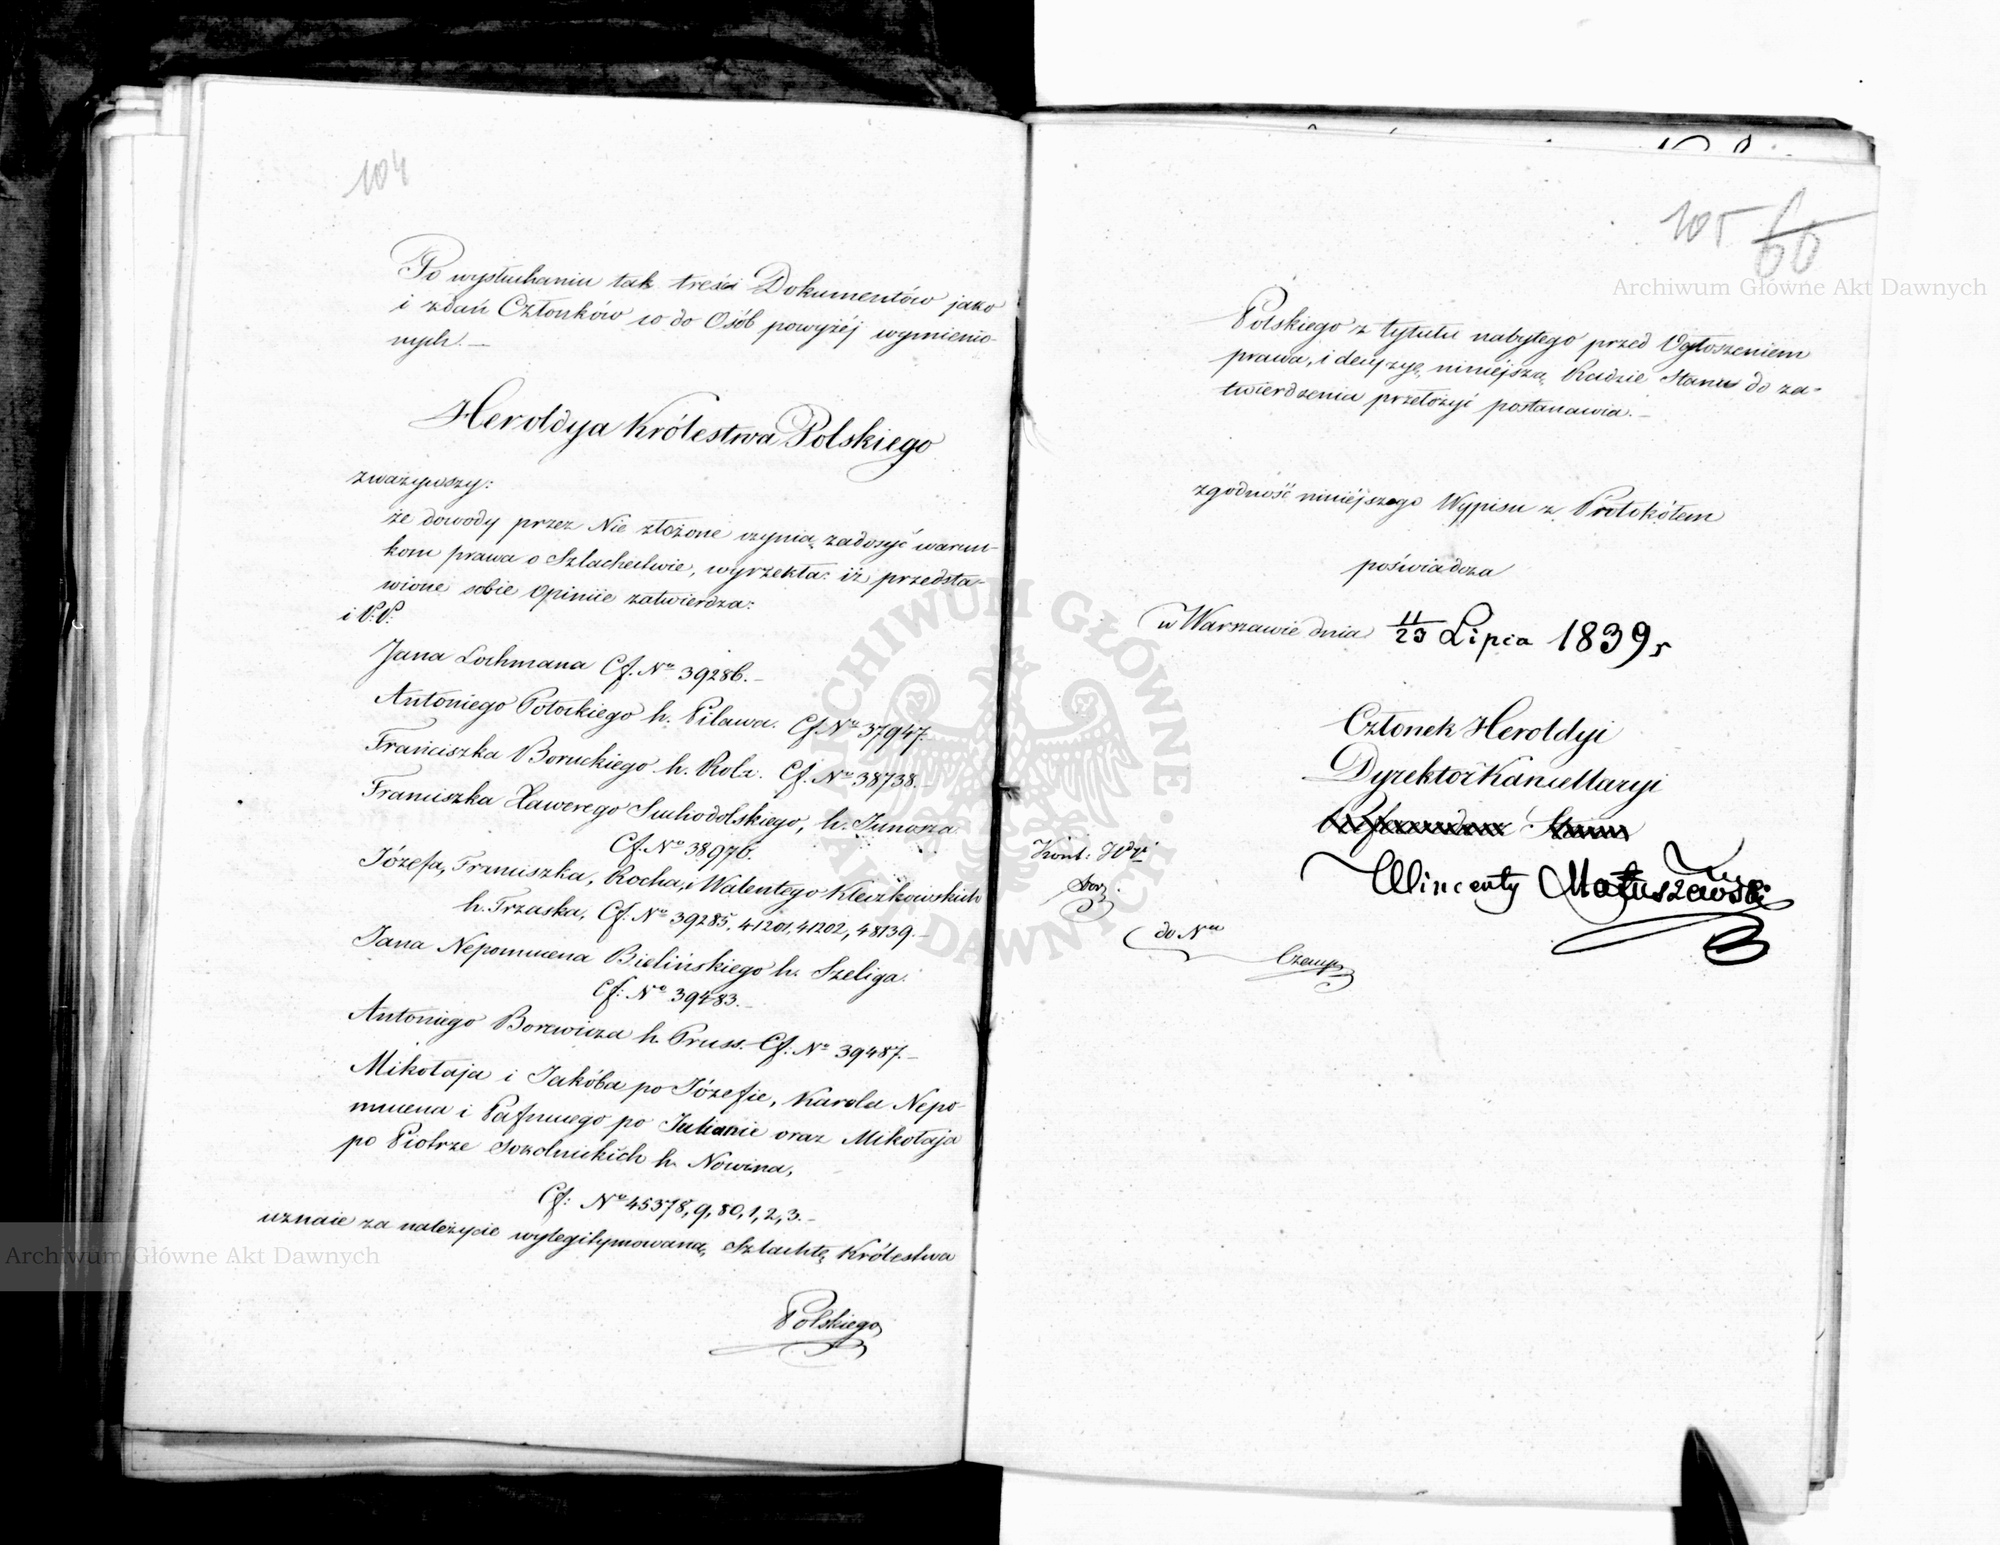 104
Po wysłuchaniu tak treści Dokumentów jako
i zdań Członków co do Osób powyżéj wymienio-
nych. —
Heroldya Królestwa Polskiego
zważywszy:
że dowody przez Nie złożone czynią zadosyć warun-
kom prawa o Szlachectwie, wyrzekła: iż przedsta-
wione sobie Opiniie zatwierdza:
i P.P.
Jana Lochmana Cf. No 39286. —
Antoniego Potockiego h. Pilawa. Cf No 37947. —
Franciszka Boruckiego h. Rola. Cf. No 38738. —
Franciszka Xawerego Suchodolskiego, h. Junosza
Cf. No 38976.
Józefa, Franciszka, Rocha, i Walentego Kleczkowskich
h. Trzaska, Cf. No 39285, 41201, 41202, 48139. —
Jana Nepomucena Bielińskiego h. Szeliga.
Cf: No 39483. —
Antoniego Borewicza h. Pruss. Cf: No 39487. —
Mikołaja i Jakóba po Józefie, Karola Nepo-
mucena i Pafnucego po Julianie oraz Mikołaja
po Piotrze Sokolnickich h. Nowina,
Cf: No 45378, 9, 80, 1, 2, 3. —
uznaie za należycie wylegitymowaną Szlachtę Królestwa
Polskiego
105 66
Polskiego z tytułu nabytego przed Ogłoszeniem
prawa, i decyzyę niniejszą Radzie Stanu do za-
twierdzenia przełożyć postanawia. —
zgodność niniéjszego Wypisu z Protokółem
poświadcza
w Warszawie dnia 11/23 Lipca 1839 r
Członek Heroldyi
Dyrektor Kancellaryi
Wincenty Matuszewski
Kont:
do Nru
Archiwum Główne Akt Dawnych
Archiwum Główne Akt Dawnych
ARCHIWUM GŁÓWNE AKT DAWNYCH